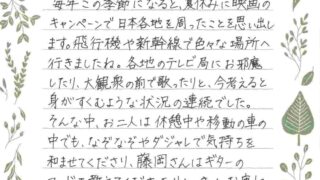 毎年この季節になると、夏休みに映画の
キャンペーンで日本各地を周ったことを思い出し
ます。飛行機や新幹線で色々な場所へ
行きましたね。各地のテレビ局にお邪魔
したり、大観衆の前で歌ったりと、今考えると
身がすくむような状況の連続でした。
そんな中、お二人は休憩中や移動の車の
中でも、なぞなぞやダジャレで気持ちを
和ませてくださり、藤岡さんはギターの